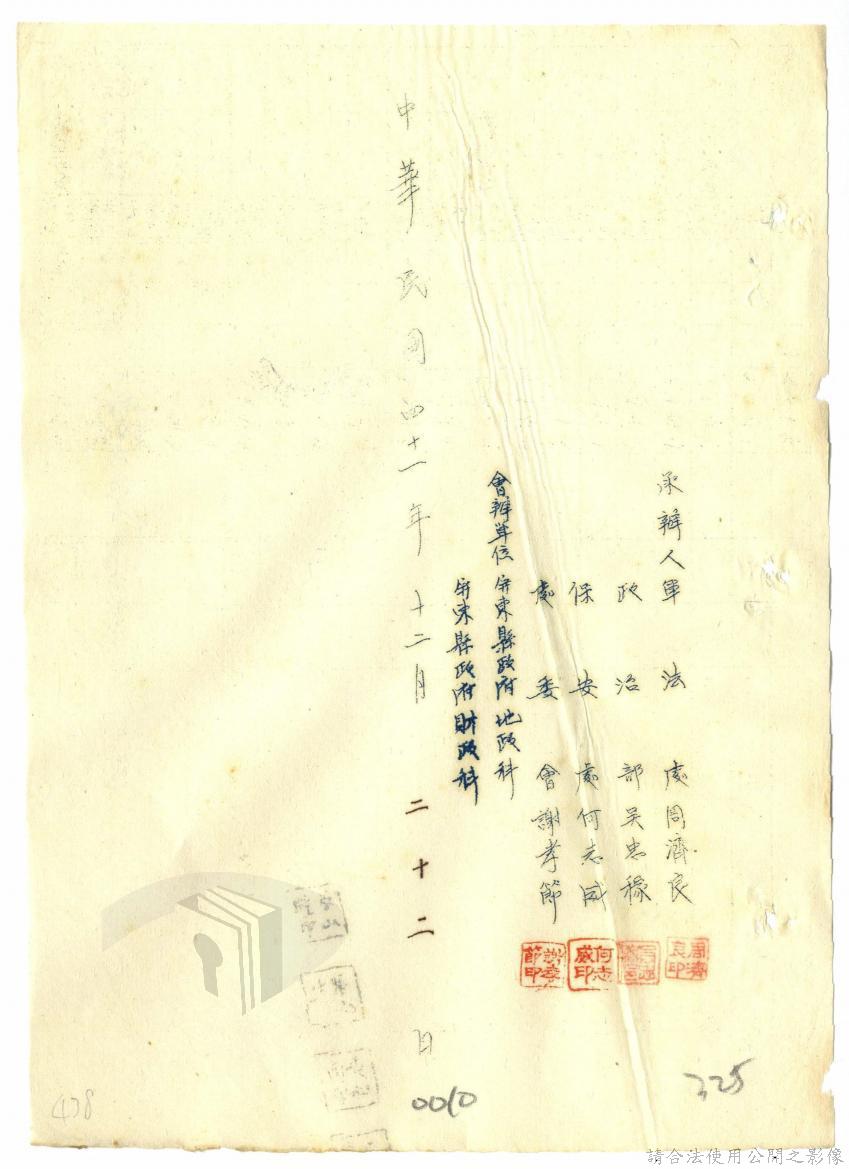 承辦人軍法處周濟良
政治部吳忠穆
保安處何志威
處委會謝孝節
會辦單位屏東縣政府地政科
屏東縣政府財政科
中華民國四十一年十二月二十二日
周濟良印
何志威印
謝孝節印
325
0010
438
請合法使用公開之影像